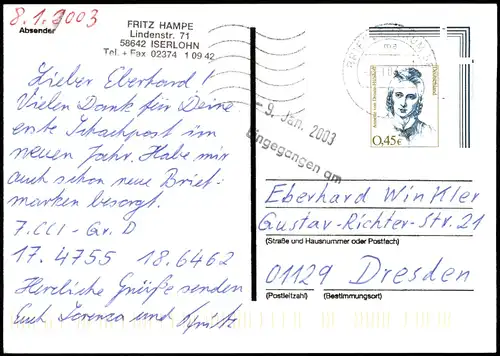 8.1.2003
Absender
FRITZ HAMPE
Lindenstr. 71
58642 ISERLOHN
Tel. + Fax 02374 1 09 42
Lieber Eberhard!
Vielen Dank für Deine
erste Schachpost im
neuen Jahr. Habe mir
auch schon neue Brief-
marken besorgt.
7. CCI - Gr. D
17. 4755 18. 6462
Herzliche Grüße senden
Euch Lorenza und Fritz
- 9. Jan. 2003
Eingegangen am
Deutschland
Annette von Droste-Hülshoff
0,45€
Eberhard Winkler
Gustav-Richter-Str. 21
(Straße und Hausnummer oder Postfach)
01129 Dresden
(Postleitzahl) (Bestimmungsort)